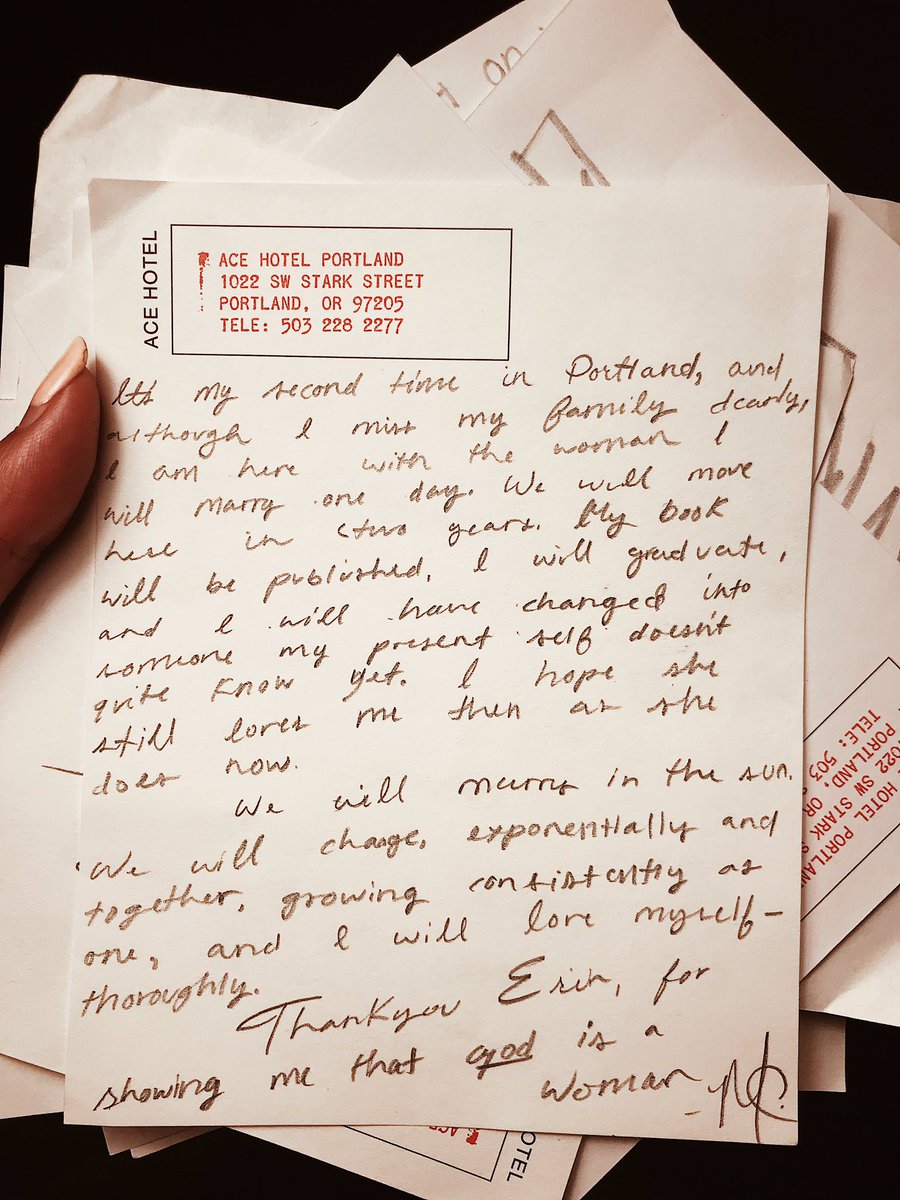 ACE HOTEL
ACE HOTEL PORTLAND
1022 SW STARK STREET
PORTLAND, OR 97205
TELE: 503 228 2277
It's my second time in Portland, and
although I miss my family dearly,
I am here with the woman I
will marry one day. We will move
here in two years. My book
will be published, I will graduate,
and I will have changed into
someone my present self doesn't
quite know yet. I hope she
still loves me then as she
does now.
We will marry in the sun.
We will change, exponentially and
together, growing consistently as
one, and I will love myself—
thoroughly.
Thankyou Erin, for
showing me that god is a
woman
HOTEL PORTLAN
1022 SW STARK S
PORTLAND, OR
TELE: 503
ACE
HOTEL